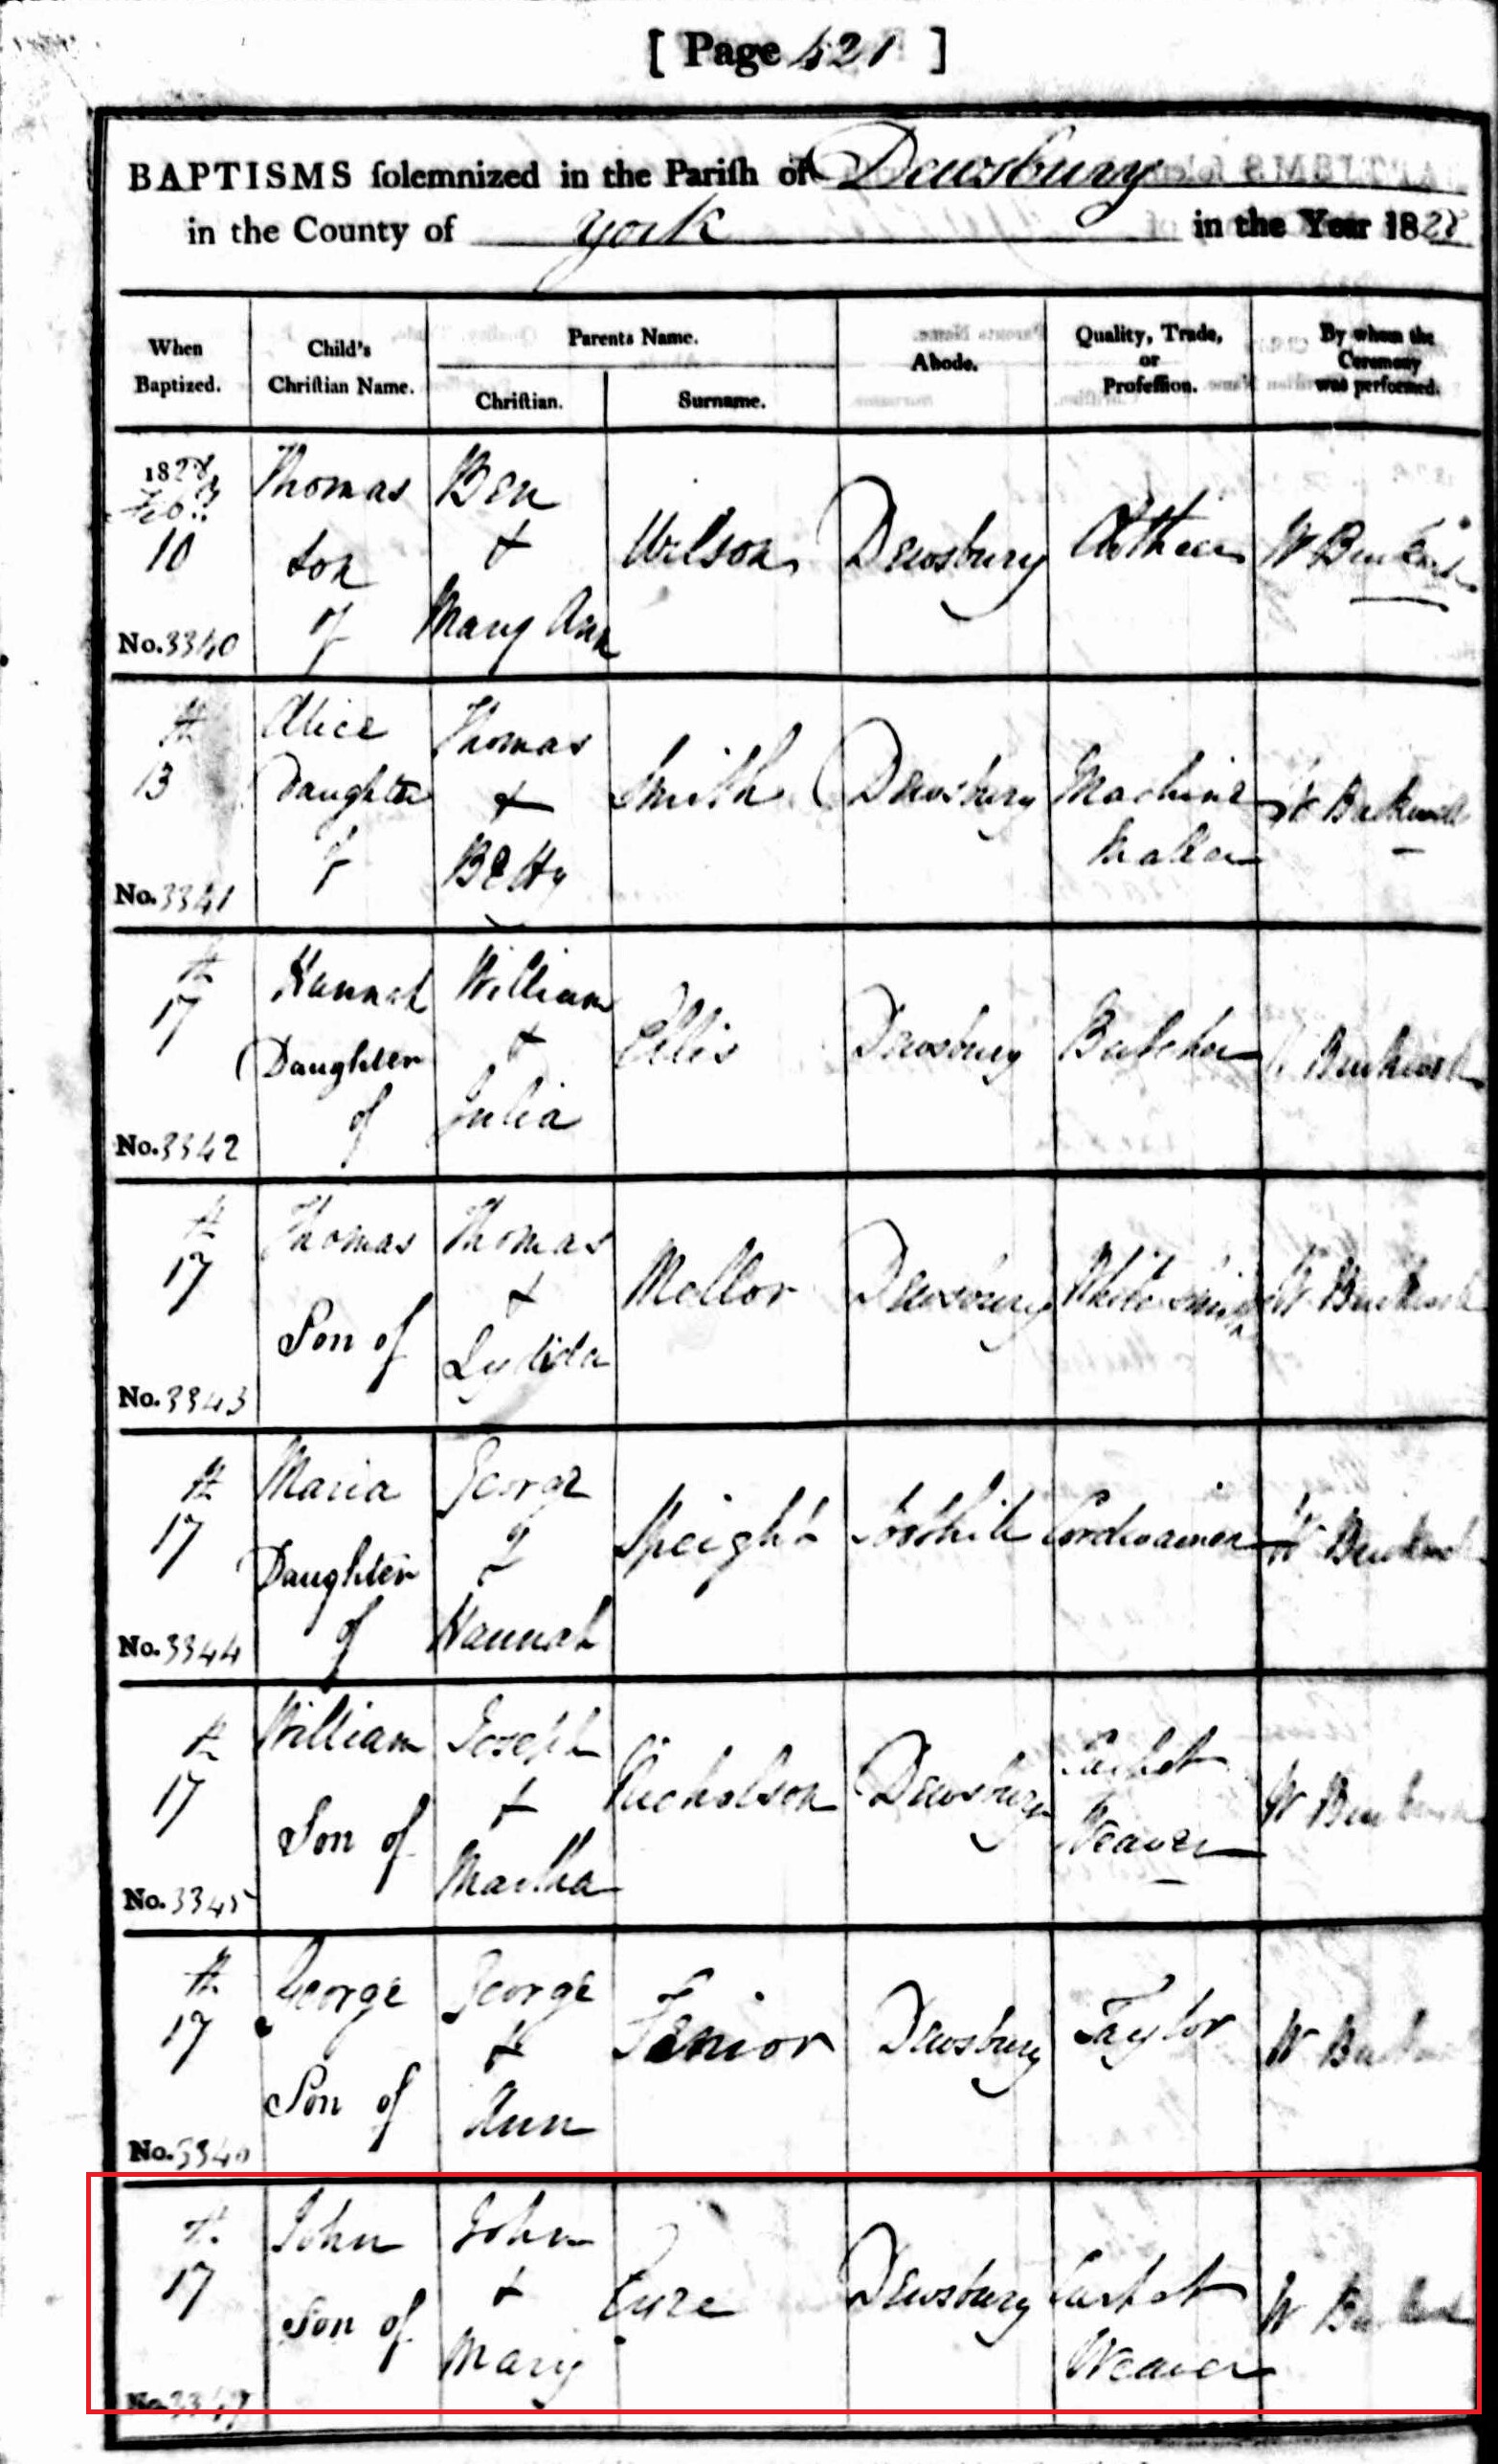 [ Page 421 ]
BAPTISMS ſolemnized in the Pariſh of Dewsbury
in the County of York in the Year 1828
When Baptized.
Child's Chriſtian Name.
Parents Name.
Chriſtian.
Surname.
Abode.
Quality, Trade, or Profeſſion.
By whom the Ceremony was performed.
1828 Feby 10 No. 3340
Thomas son of
Ben + Mary Ann
Wilson
Dewsbury
Clothier
W
th 13 No. 3341
Alice Daughter of
Thomas + Betty
Smith
Dewsbury
Machine Maker
W
th 17 No. 3342
Hannah Daughter of
William + Julia
Ellis
Dewsbury
Butcher
th 17 No. 3343
Thomas Son of
Thomas + Lydida
Mellor
Dewsbury
White Smith
W
th 17 No. 3344
Maria Daughter of
George & Hannah
Speight
Soothill
Cordwainer
W
th 17 No. 3345
William Son of
Joseph + Martha
Nicholson
Dewsbury
Carpet Weaver
W
th 17 No. 3346
George Son of
George & Ann
Senior
Dewsbury
Taylor
W
th 17 No. 3347
John Son of
John + Mary
Dewsbury
Carpet Weaver
W